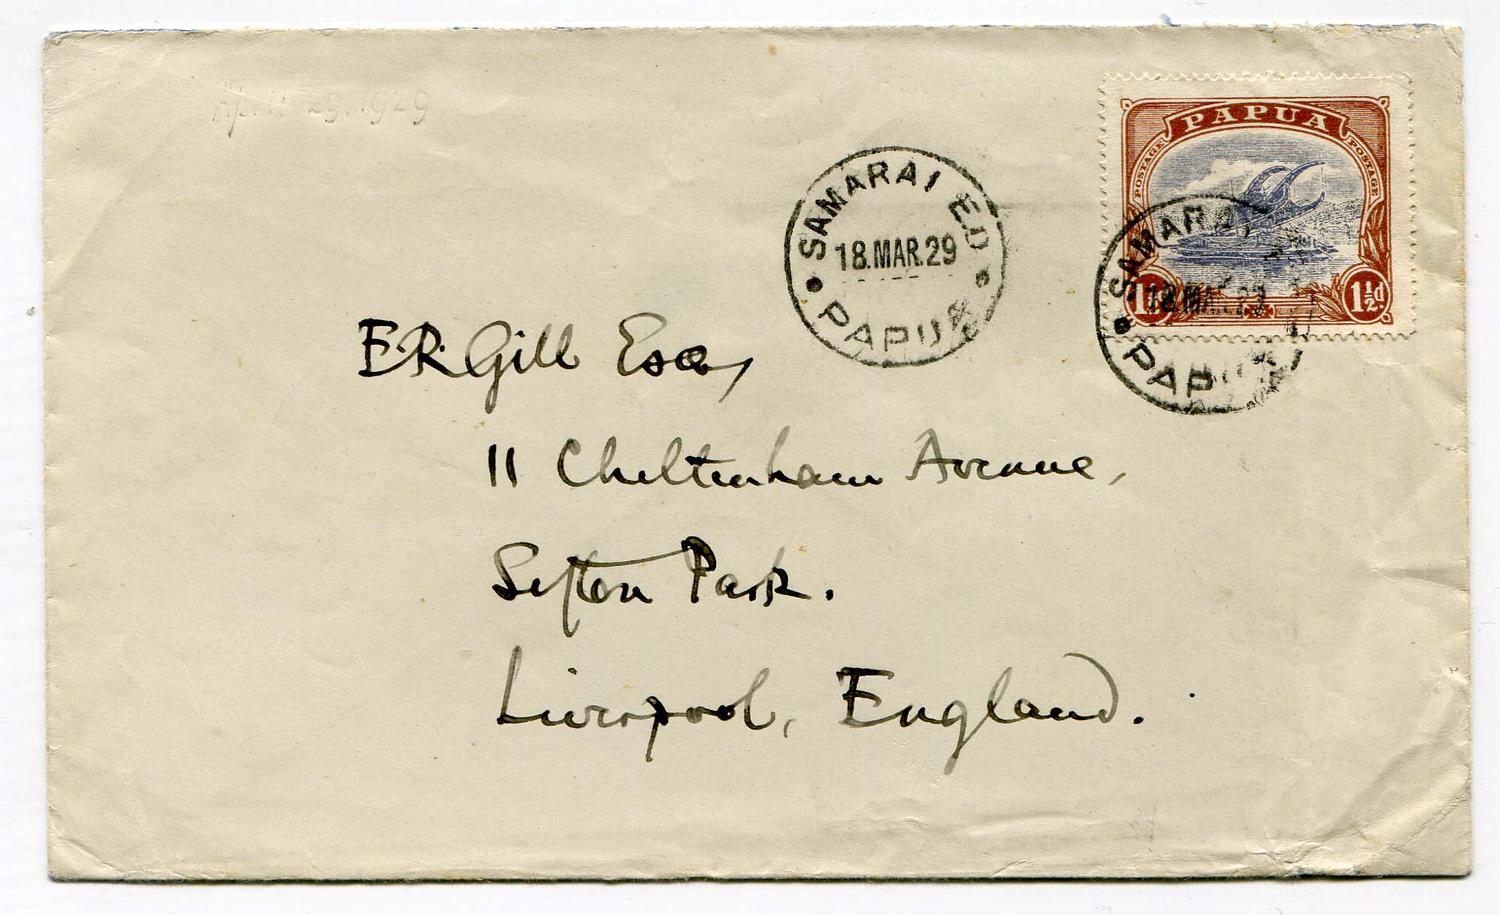 April 29, 1929
SAMARAI E.D
18.MAR.29
PAPUA
PAPUA
POSTAGE
POSTAGE
1½d.
SAMARAI
18.MAR.29
PAPUA
E.R.Gill Esq,
11 Cheltenham Avenue,
Sefton Park.
Liverpool, England.